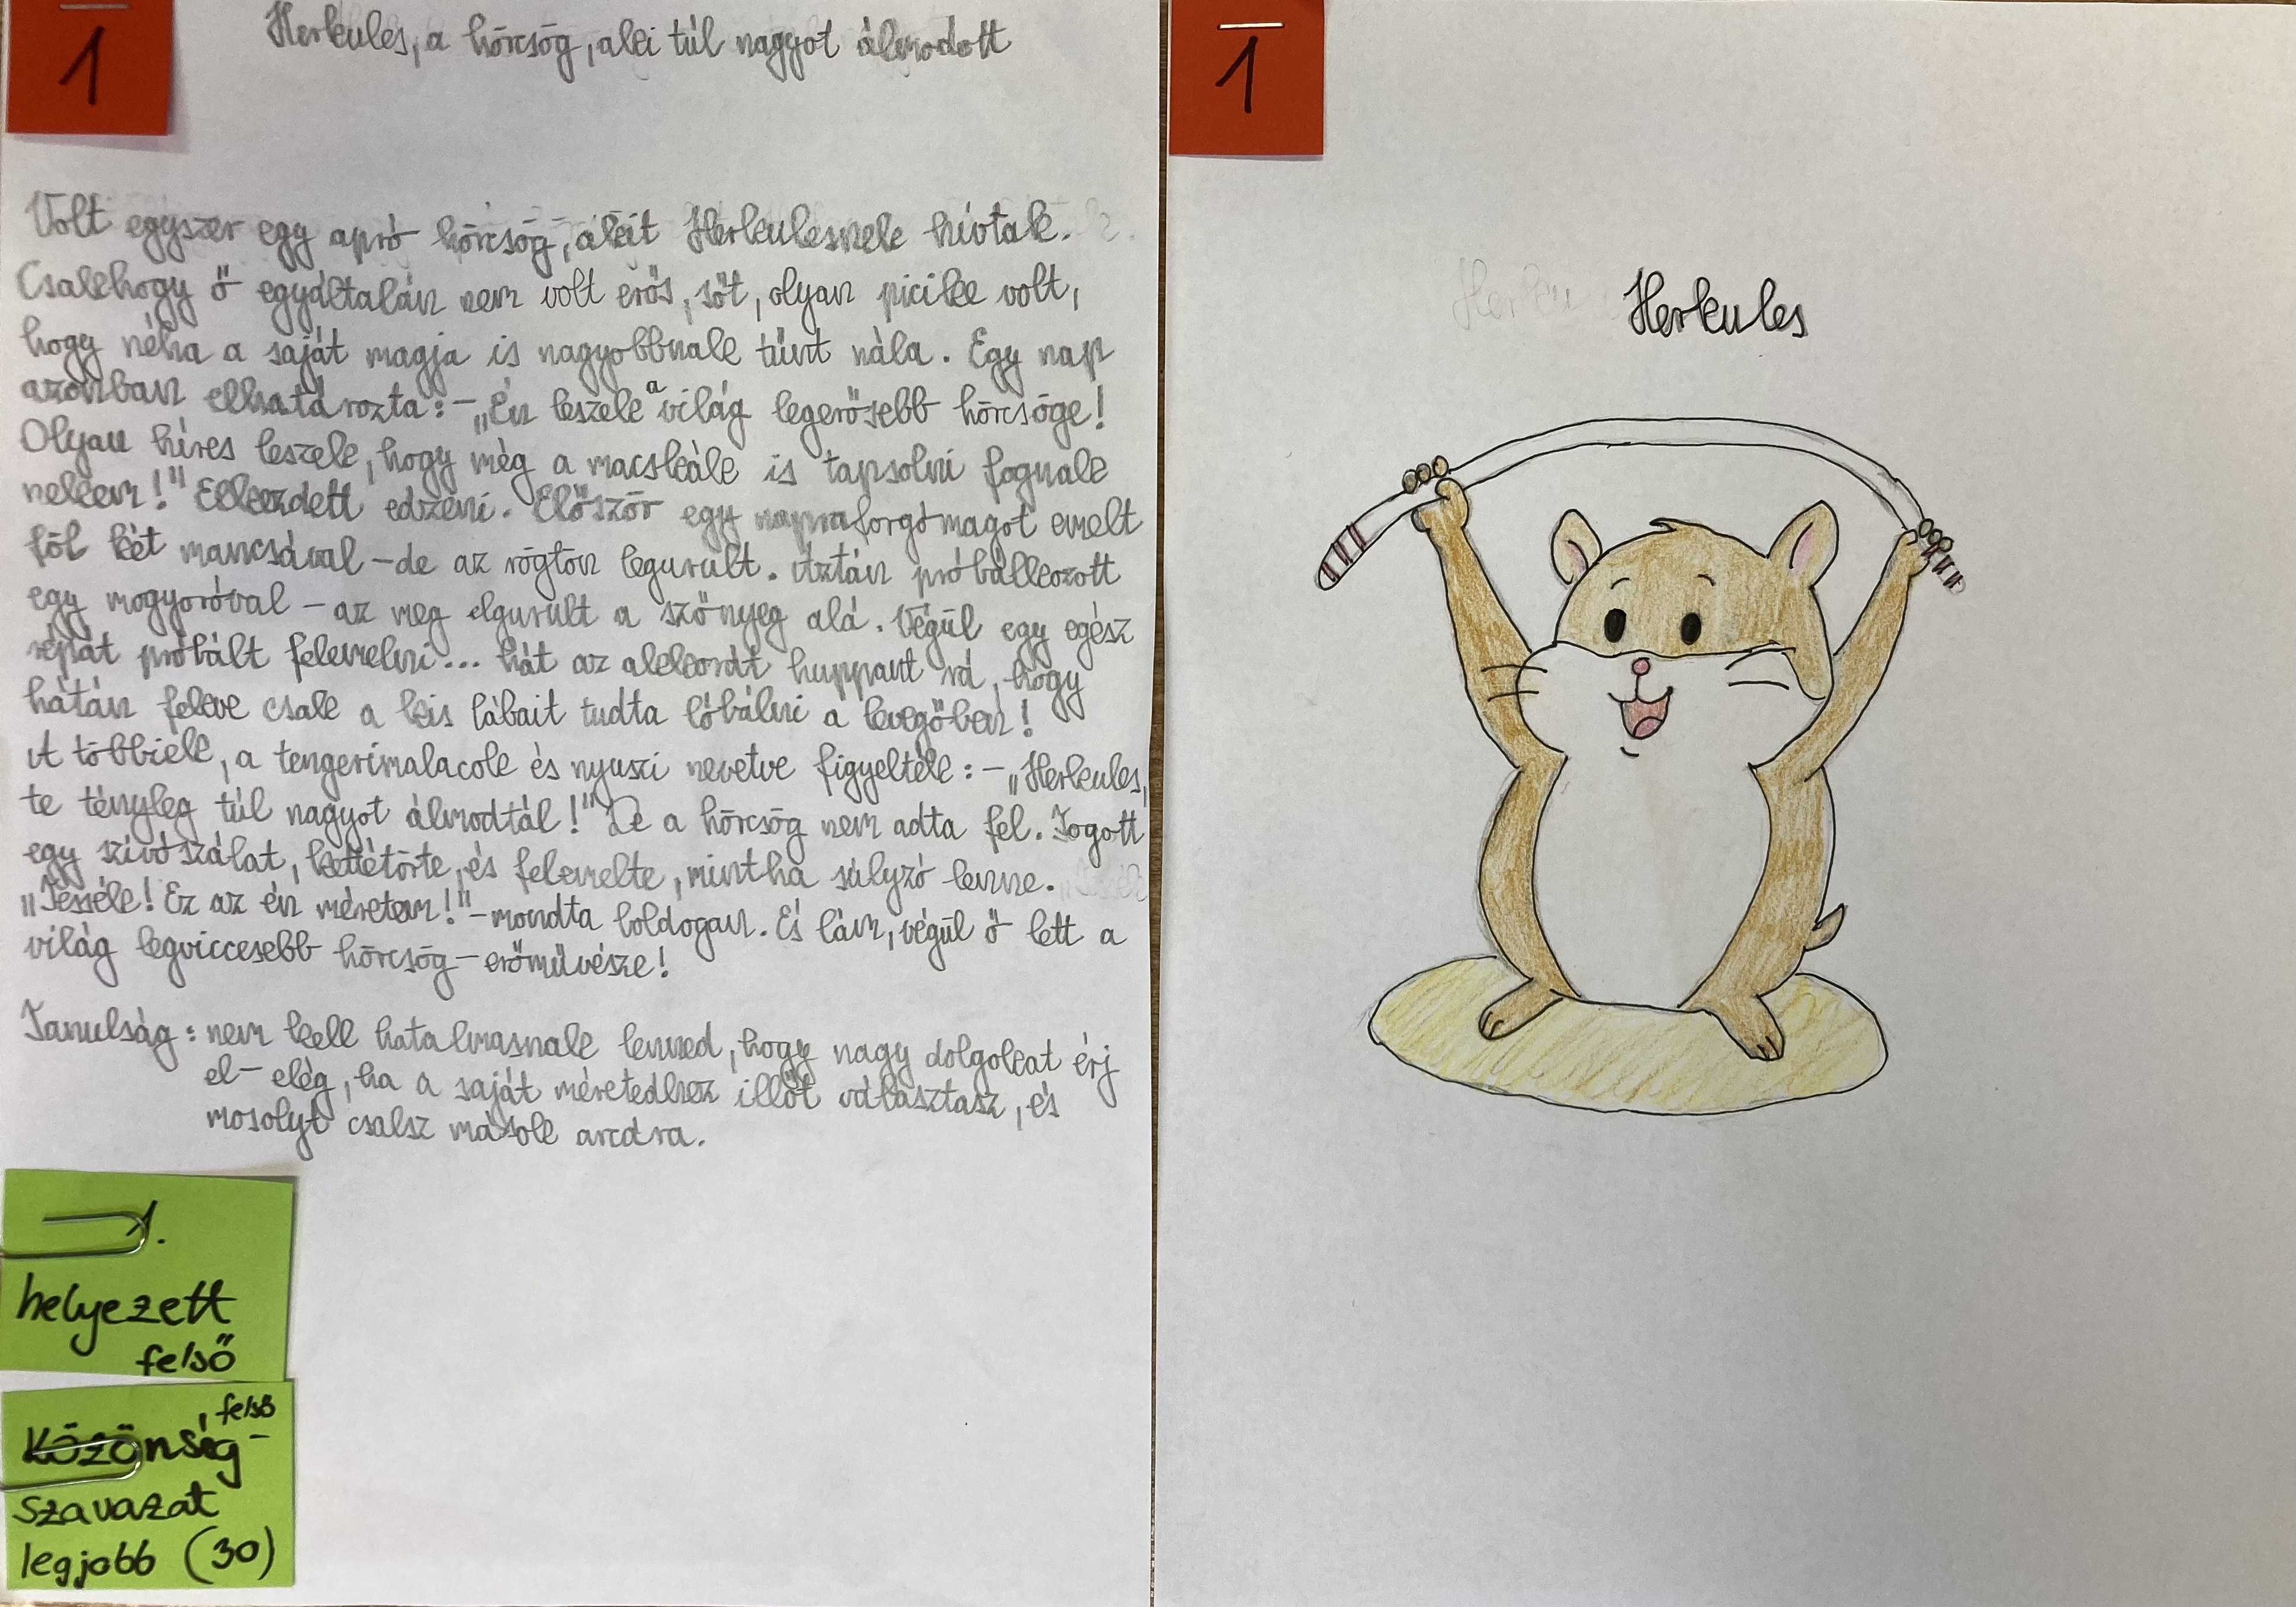 1
Herkules, a hörcsög, aki túl nagyot álmodott
Volt egyszer egy apró hörcsög, akit Herkulesnek hívtak.
Csakhogy ő egyáltalán nem volt erős, sőt, olyan picike volt,
hogy néha a saját magja is nagyobbnak tűnt nála. Egy nap
azonban elhatározta: - „Én leszek a világ legerősebb hörcsöge!
Olyan híres leszek, hogy még a macskák is tapsolni fognak
nekem!" Elkezdett edzeni. Először egy napraforgómagot emelt
föl két mancsával - de az rögtön legurult. Aztán próbálkozott
egy mogyoróval - az meg elgurult a szőnyeg alá. Végül egy egész
répát próbált felemelni... hát az akkorát huppant rá, hogy
hátán fekve csak a kis lábait tudta lóbálni a levegőben!
A többiek, a tengerimalacok és nyuszi nevetve figyelték: - „Herkules,
te tényleg túl nagyot álmodtál!" De a hörcsög nem adta fel. Fogott
egy szívószálat, kettétörte, és felemelte, mintha súlyzó lenne.
„Tessék! Ez az én méretem!" - mondta boldogan. És lám, végül ő lett a
világ legviccesebb hörcsög-erőművésze!
Tanulság: nem kell hatalmasnak lenned, hogy nagy dolgokat érj
el - elég, ha a saját méretedhez illőt választasz, és
mosolyt csalsz mások arcára.
1.
helyezett
felső
felső
Közönség-
szavazat
legjobb (30)
1
Herkules